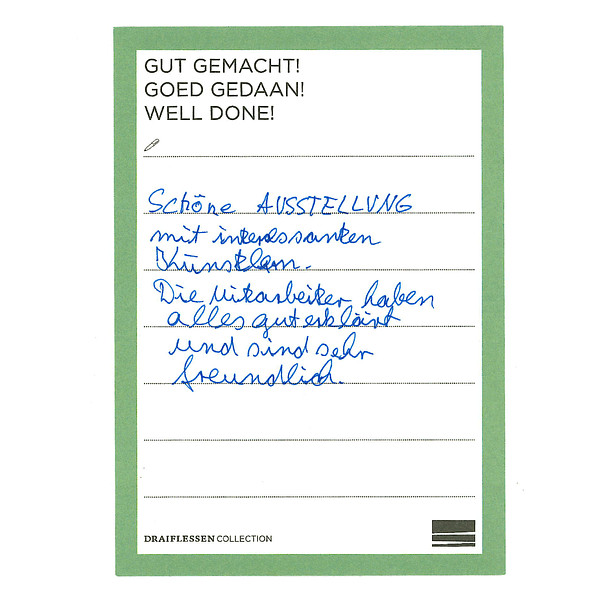 GUT GEMACHT!
GOED GEDAAN!
WELL DONE!
Schöne AUSSTELLUNG
mit interessanten
Künstlern.
Die Mitarbeiter haben
alles gut erklärt
und sind sehr
freundlich.
DRAIFLESSEN COLLECTION